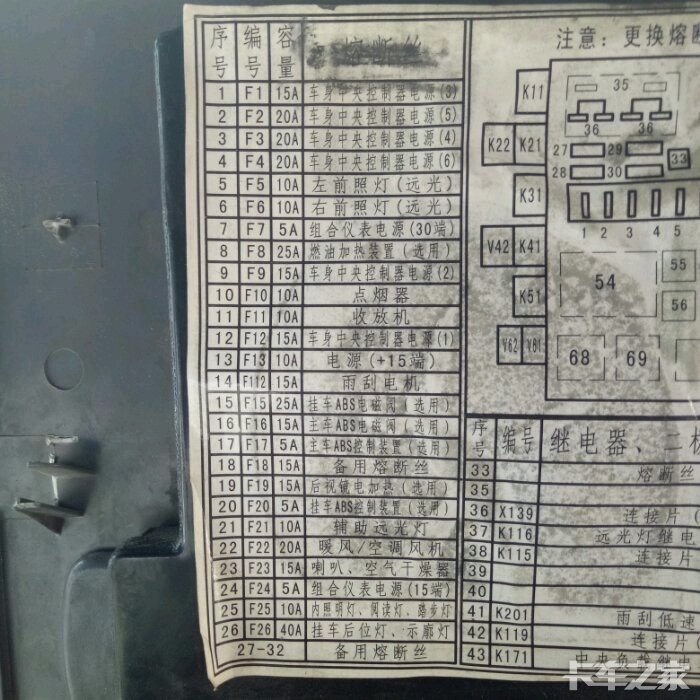 序号 编号 容量 熔断丝
1 F1 15A 车身中央控制器电源(3)
2 F2 20A 车身中央控制器电源(5)
3 F3 20A 车身中央控制器电源(4)
4 F4 20A 车身中央控制器电源(6)
5 F5 10A 左前照灯(远光)
6 F6 10A 右前照灯(远光)
7 F7 5A 组合仪表电源(30端)
8 F8 25A 燃油加热装置(选用)
9 F9 15A 车身中央控制器电源(2)
10 F10 10A 点烟器
11 F11 10A 收放机
12 F12 15A 车身中央控制器电源(1)
13 F13 10A 电源(+15端)
14 F112 15A 雨刮电机
15 F15 25A 挂车ABS电磁阀(选用)
16 F16 15A 主车ABS电磁阀(选用)
17 F17 5A 主车ABS控制装置(选用)
18 F18 15A 备用熔断丝
19 F19 15A 后视镜电加热(选用)
20 F20 5A 挂车ABS控制装置(选用)
21 F21 10A 辅助远光灯
22 F22 20A 暖风/空调风机
23 F23 15A 喇叭、空气干燥器
24 F24 5A 组合仪表电源(15端)
25 F25 10A 内照明灯、阅读灯、踏步灯
26 F26 40A 挂车后位灯、示廓灯
27-32 备用熔断丝
注意:更换熔断
K11
35
36 36
K22 K21
27 29
33
28 30
K31
1 2 3 4 5
V42 K41
54
55
K51
56
V62 V61
68 69
序号 编号 继电器、二极
33 熔断丝
35
36 X139 连接片(
37 K116 远光灯继电
38 K115 连接片
39
40
41 K201 雨刮低速
42 K119 连接片(
43 K171
卡车之家